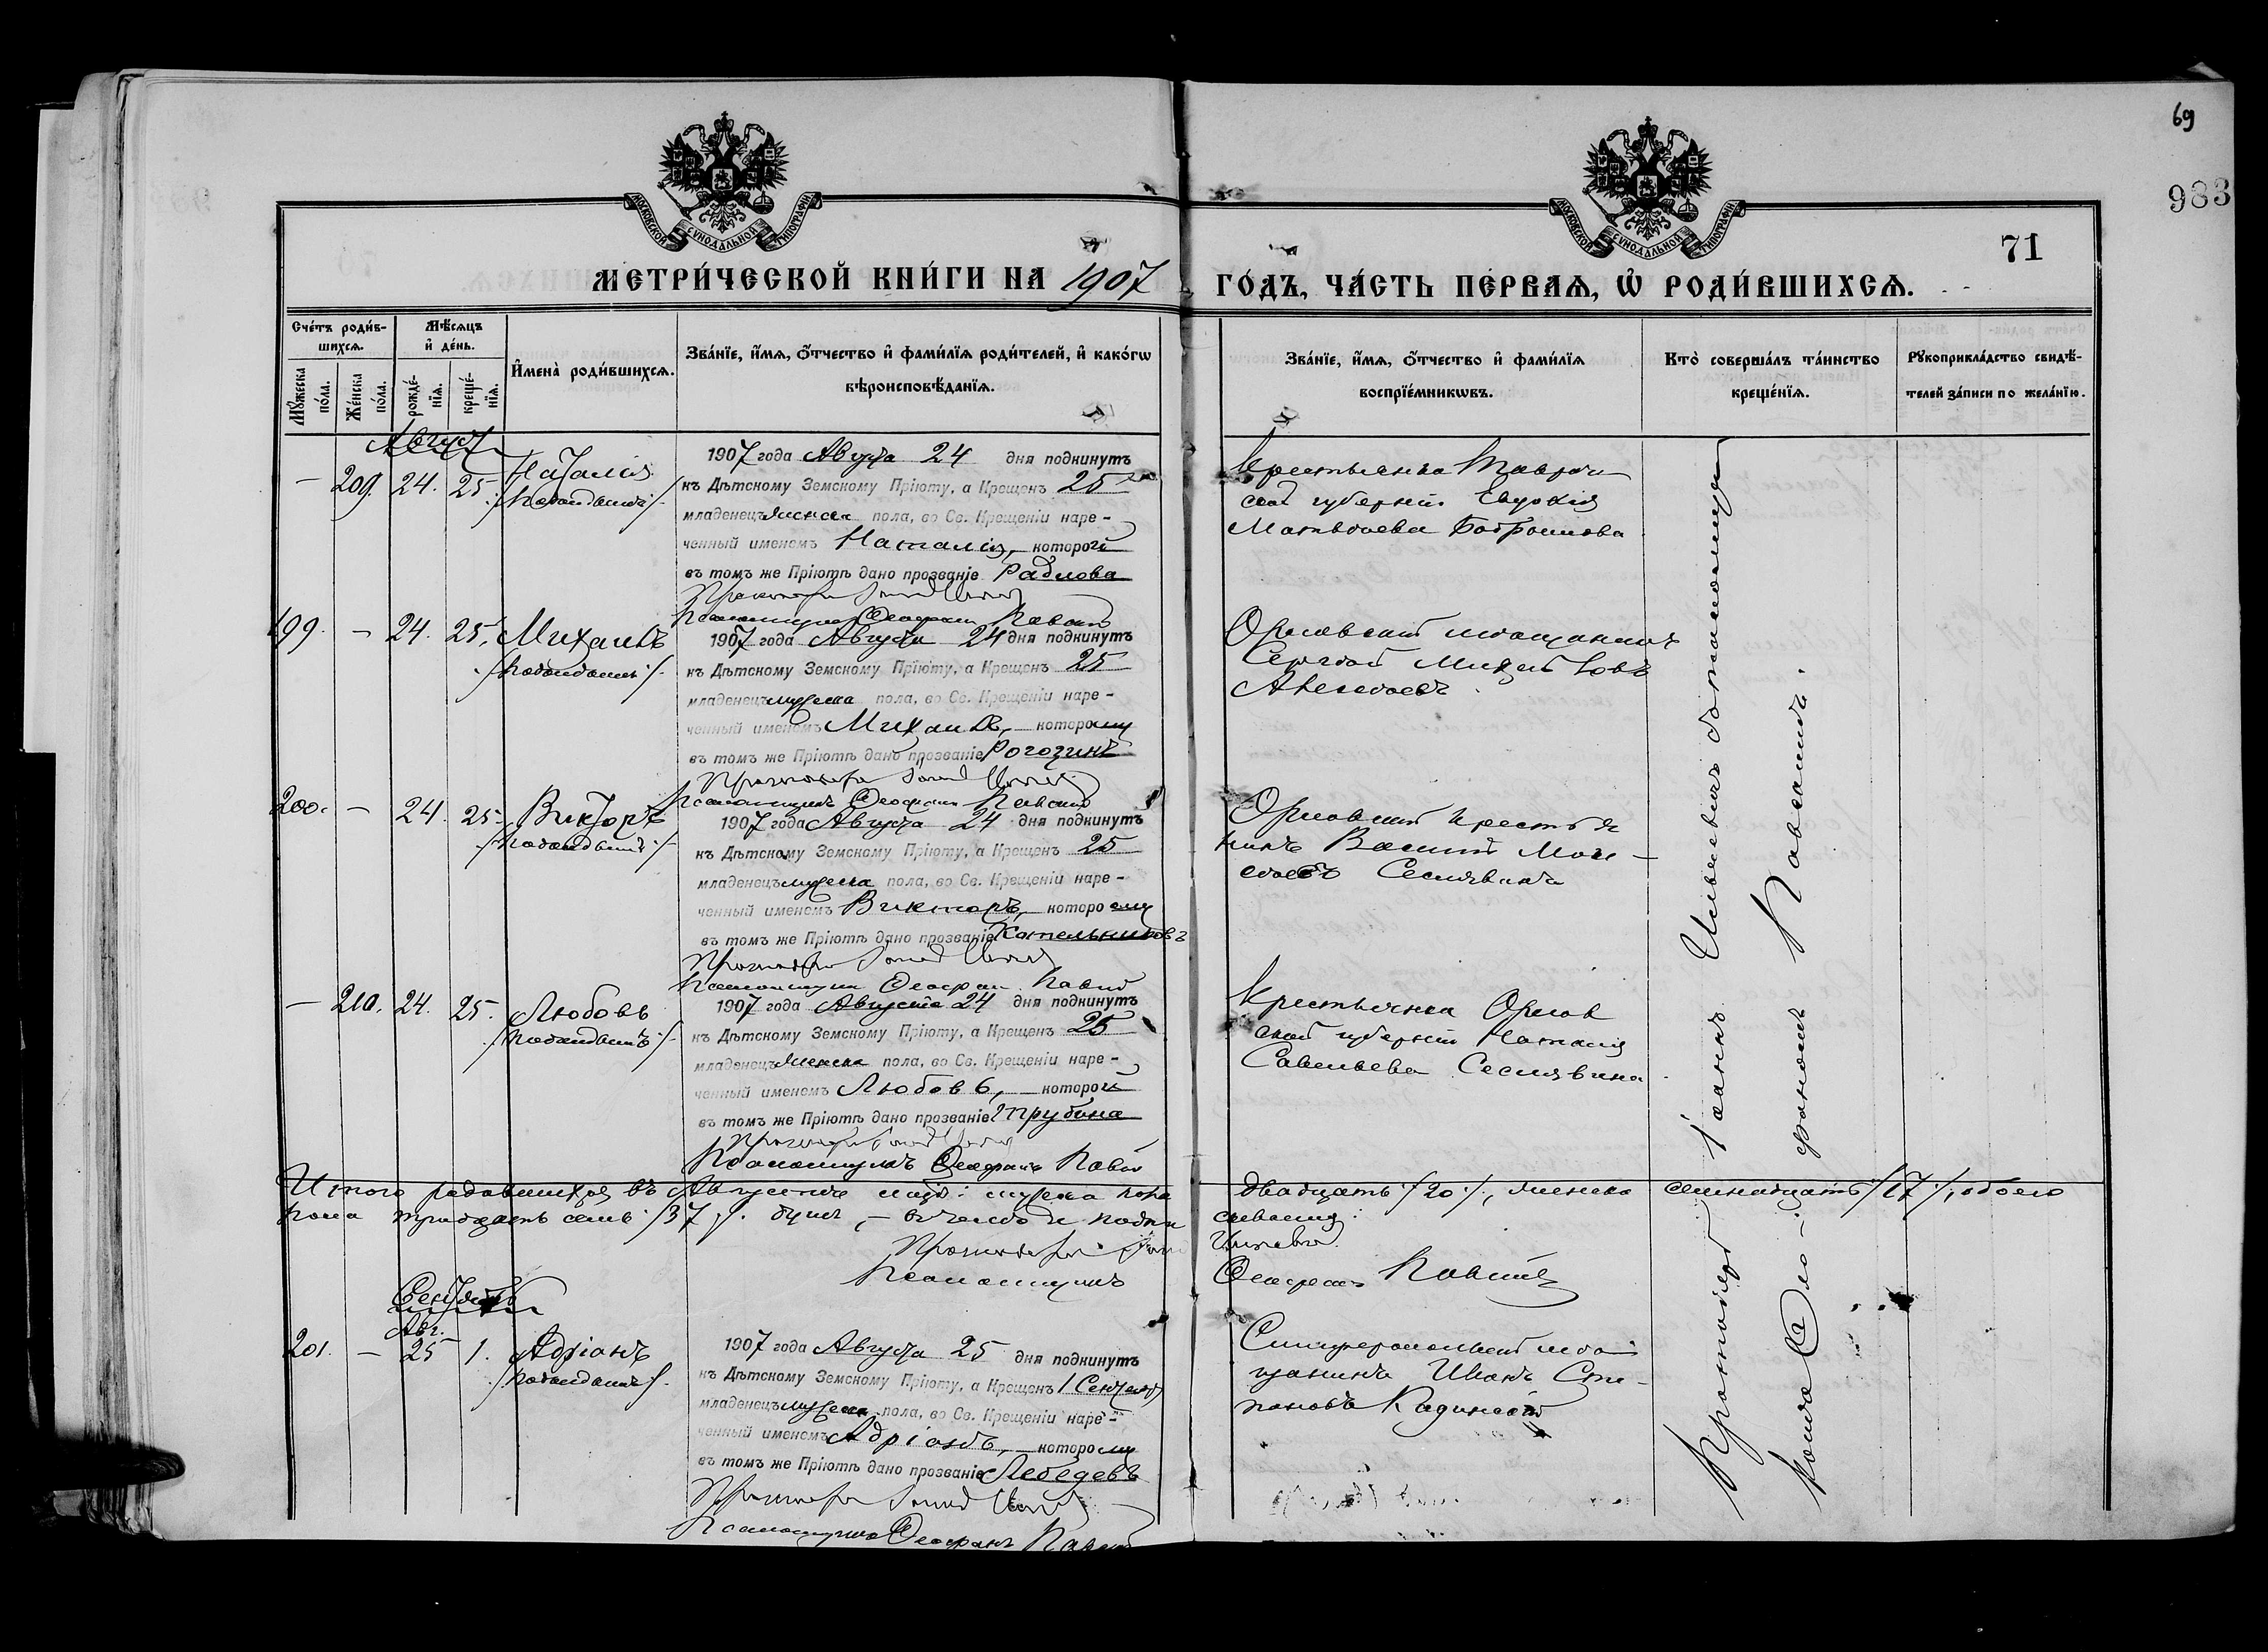 69
983
71
МОСКОВСКОЙ СѴНОДАЛЬНОЙ ТИПОГРАФІИ
МОСКОВСКОЙ СѴНОДАЛЬНОЙ ТИПОГРАФІИ
МЕТРИ́ЧЕСКОЙ КНИ́ГИ НА 1907 ГО́ДЪ, ЧА́СТЬ ПЕ́РВАѦ, Ѽ РОДИ́ВШИХСѦ.
Сче́тъ роди́в-
шихсѧ.
Мꙋ́жеска по́ла.
Же́нска по́ла.
Мѣ́сѧцъ
и҆ де́нь.
рожде́-
нїѧ.
креще́-
нїѧ.
И҆мена̀ роди́вшихсѧ.
Зва́нїе, и҆́мѧ, ѻ҆́тчество и҆ фами́лїѧ роди́телей, и҆ како́гѡ
вѣроисповѣ́данїѧ.
Зва́нїе, и҆́мѧ, ѻ҆́тчество и҆ фами́лїѧ
воспрїе́мникѡвъ.
Кто̀ соверша́лъ та́инство
креще́нїѧ.
Рꙋкоприкла́дство свидѣ́-
телей за́писи по жела́нїю.
Август
— 209. 24. 25. Наталія
1907 года Августа 24 дня подкинутъ
къ Дѣтскому Земскому Пріюту, а Крещенъ 25
младенецъ женска пола, во Св. Крещеніи наре-
ченный именемъ Наталія, которой
въ томъ же Пріютѣ дано прозваніе Радлова
Псаломщикъ Ѳеофанъ
Крестьянка Тавриче
ской губерніи Евдокія
Матвѣева
199. — 24. 25. Михаилъ
1907 года Августа 24 дня подкинутъ
къ Дѣтскому Земскому Пріюту, а Крещенъ 25
младенецъ мужеска пола, во Св. Крещеніи наре-
ченный именемъ Михаилъ, которому
въ томъ же Пріютѣ дано прозваніе Рогозинъ
Псаломщикъ Ѳеофанъ
Орловскій мѣщанинъ
Сергѣй Михайловъ
Алексѣевъ
200. — 24. 25. Викторъ
1907 года Августа 24 дня подкинутъ
къ Дѣтскому Земскому Пріюту, а Крещенъ 25
младенецъ мужеска пола, во Св. Крещеніи наре-
ченный именемъ Викторъ, которому
въ томъ же Пріютѣ дано прозваніе Котельниковъ
Псаломщикъ Ѳеофанъ
Орловскій крестья
нинъ Василій Мои-
сѣевъ Сеславинъ
— 210. 24. 25. Любовь
1907 года Августа 24 дня подкинутъ
къ Дѣтскому Земскому Пріюту, а Крещенъ 25
младенецъ женска пола, во Св. Крещеніи наре-
ченный именемъ Любовь, которой
въ томъ же Пріютѣ дано прозваніе Трубина
Псаломщикъ Ѳеофанъ
Крестьянка Орлов
ской губерніи Наталія
Савельева Сеславина
Итого родившихся въ Августѣ мцѣ: мужска пола двадцать /20/, женска семнадцать /17/, обоего
пола тридцать семь /37/. душъ,
Псаломщикъ Ѳеофанъ
Сентябрь
Авг.
201. — 25 1. Адріанъ
1907 года Августа 25 дня подкинутъ
къ Дѣтскому Земскому Пріюту, а Крещенъ 1 Сентября
младенецъ мужеска пола, во Св. Крещеніи наре-
ченный именемъ Адріанъ, которому
въ томъ же Пріютѣ дано прозваніе Лебедевъ
Псаломщикъ Ѳеофанъ
Симферопольскій мѣ
щанинъ Иванъ Сте-
пановъ
Протоіерей Іоаннъ